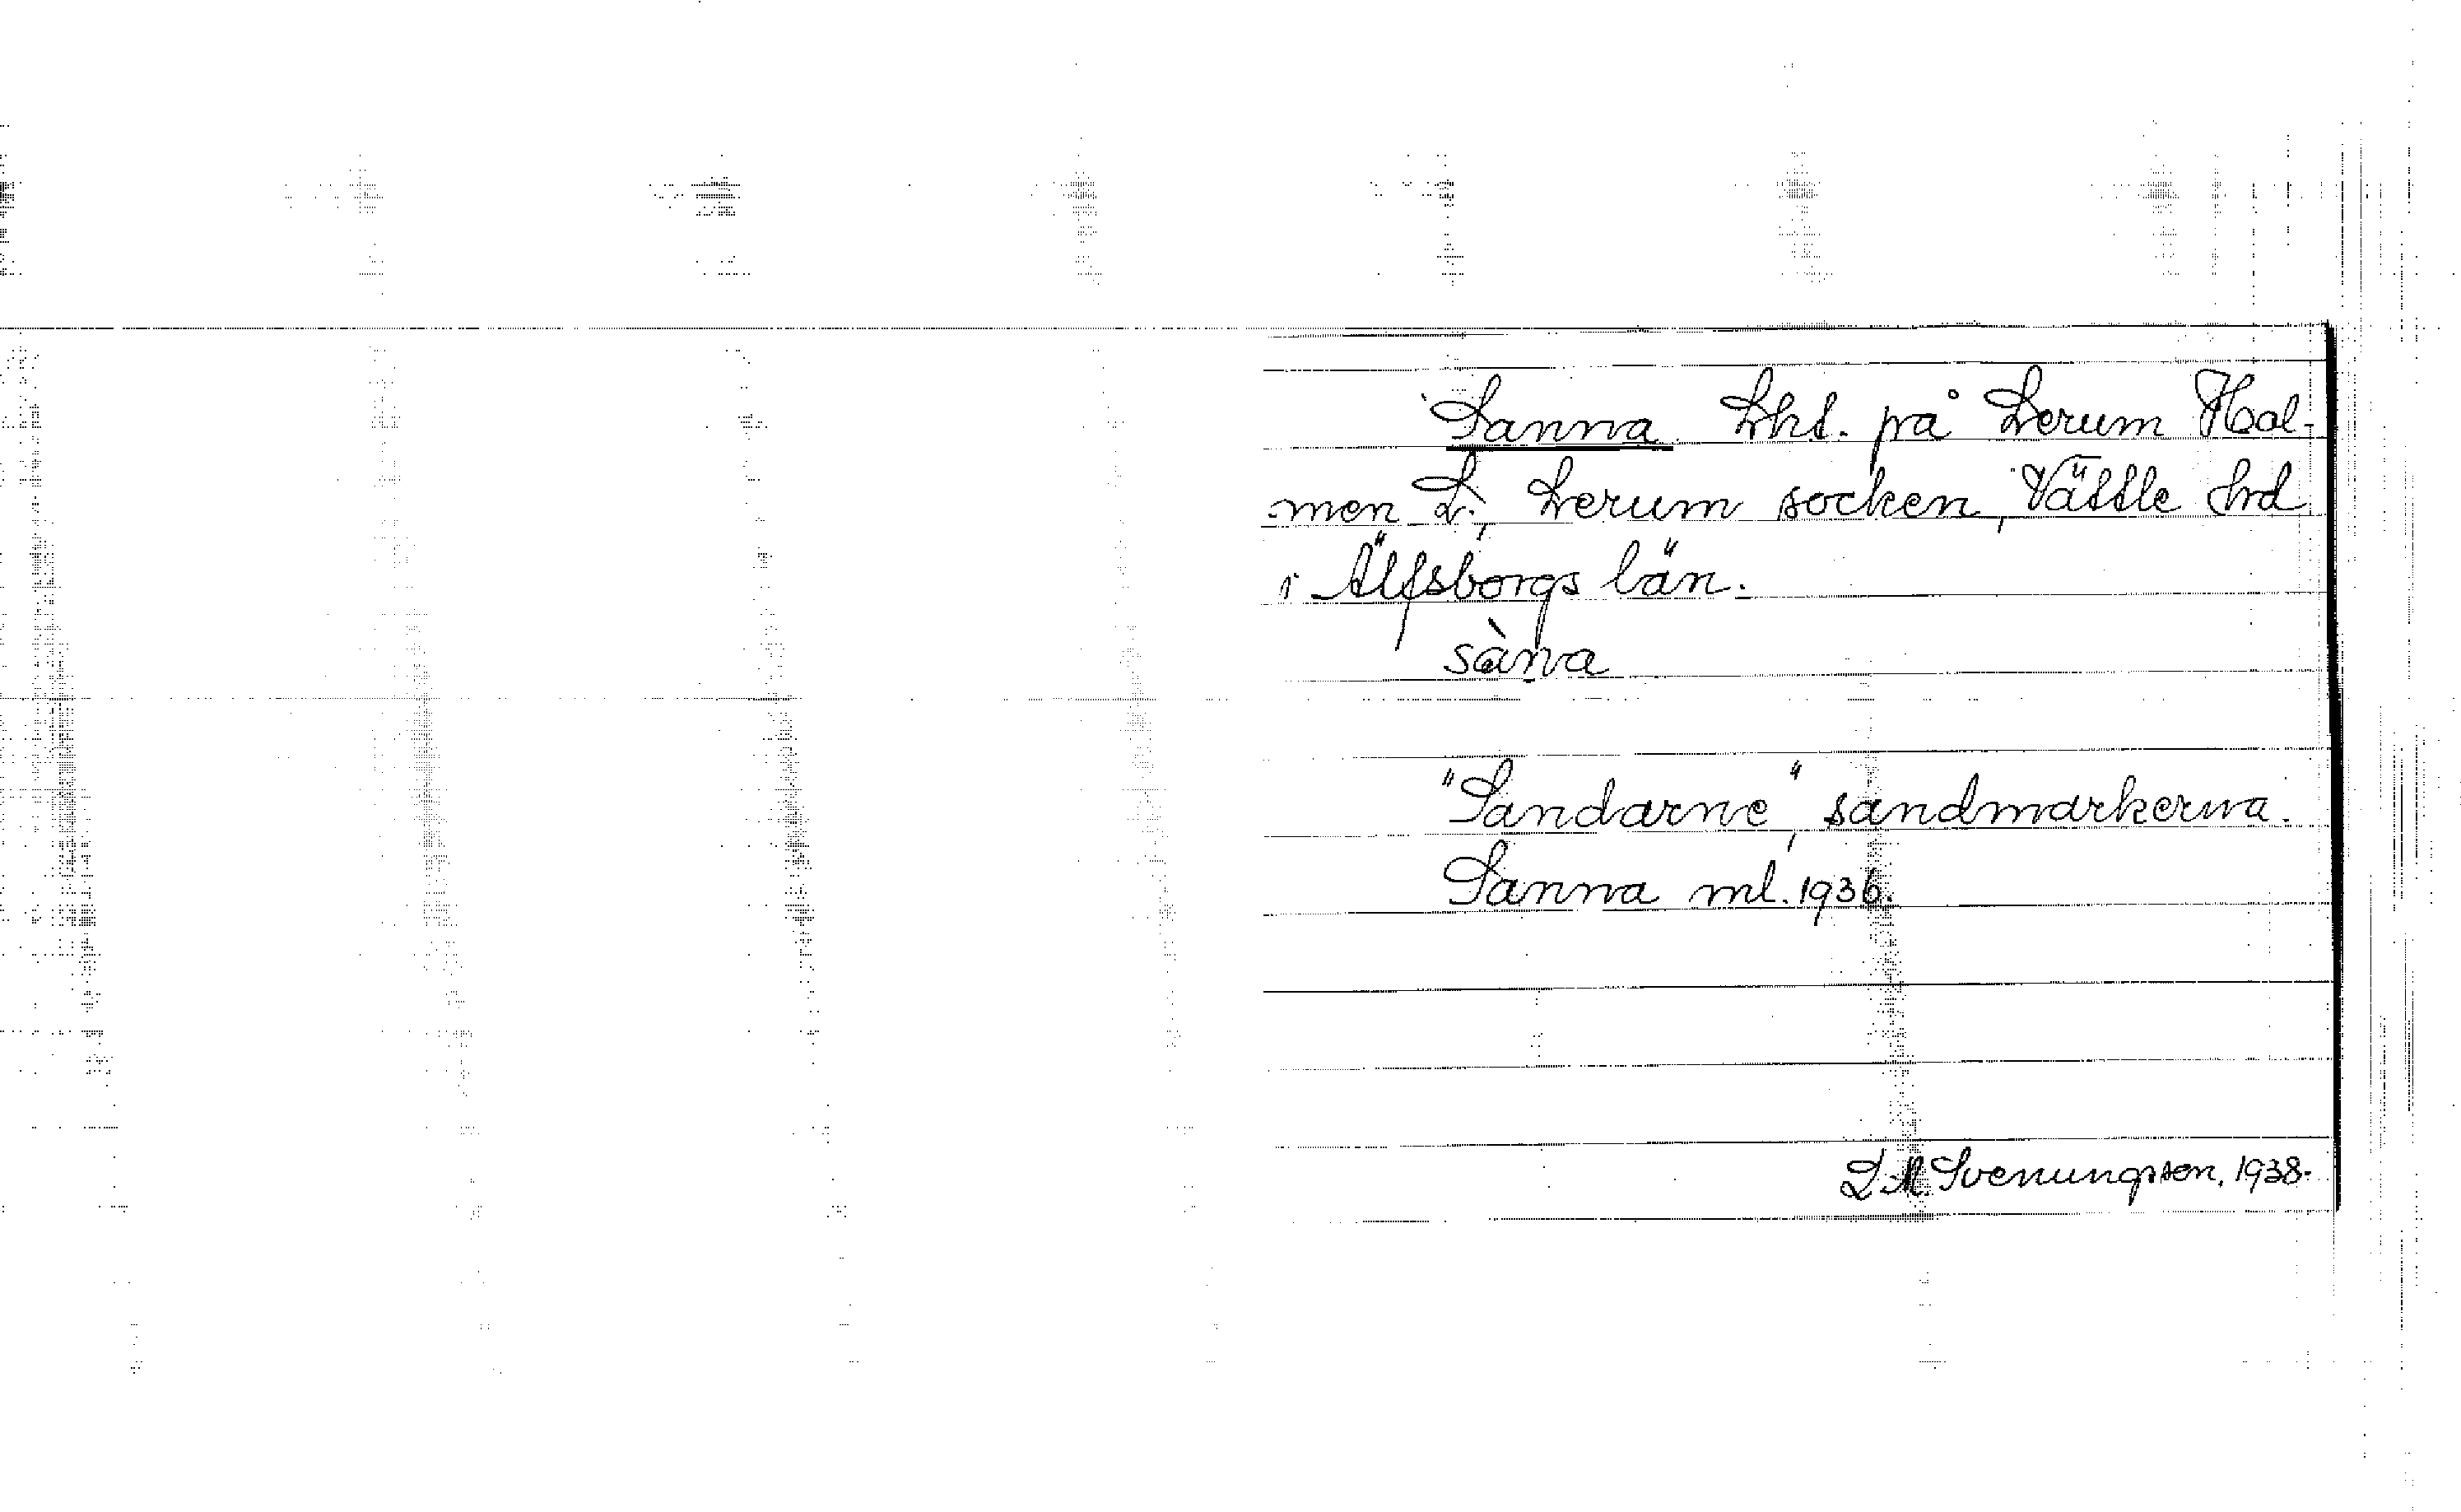 Sanna Lht. på Lerum Hol-
men L., Lerum socken, Vättle hrd
i Älfsborgs län.
sàn̥a
"Sandarne", sandmarkerna.
Sanna ml. 1936.
Svenungsson, 1938.